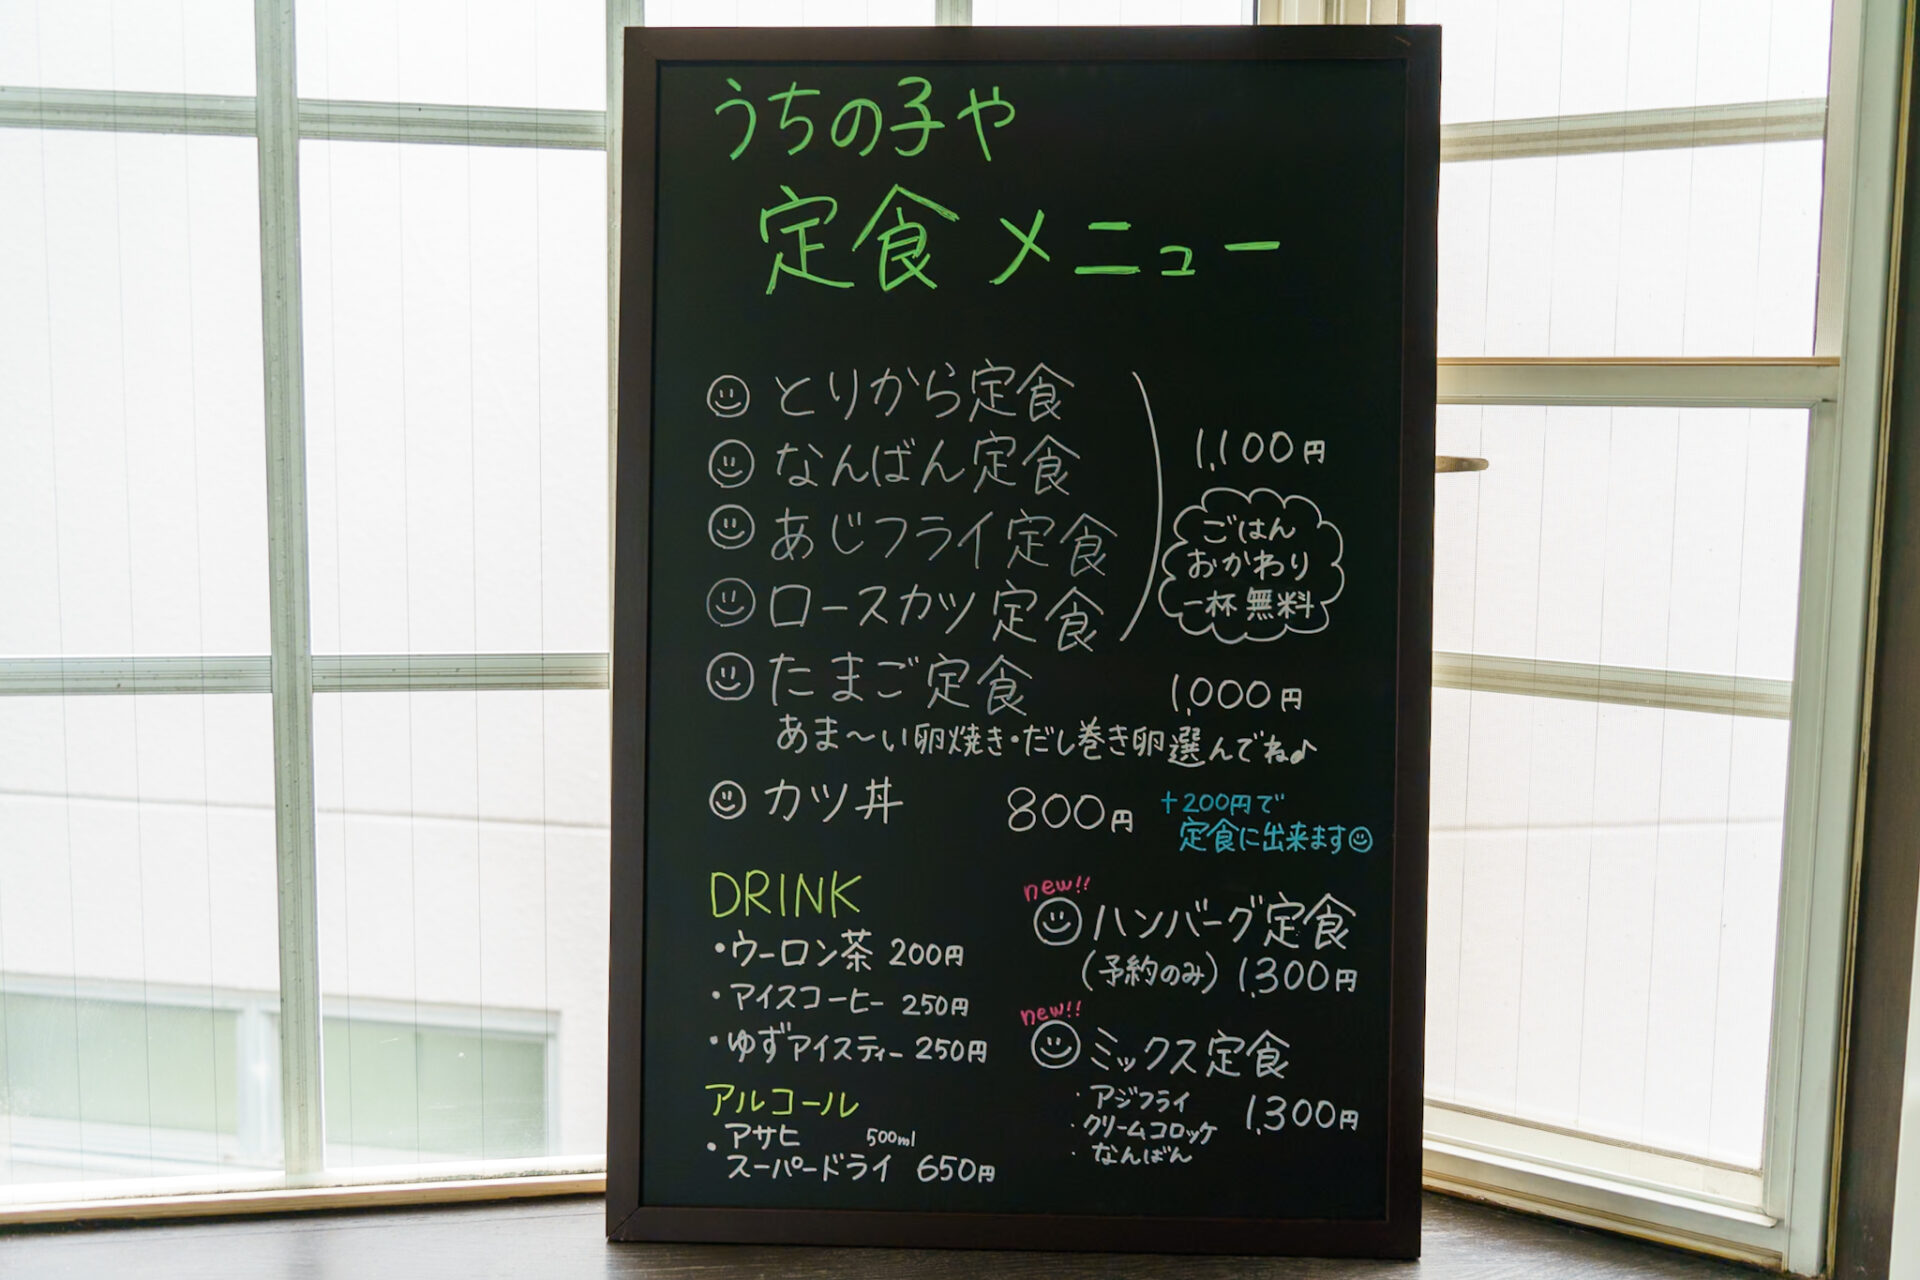 うちの子や
定食メニュー
とりから定食
なんばん定食
あじフライ定食
ロースカツ定食
1,100円
ごはん
おかわり
一杯無料
たまご定食 1,000円
あま〜い卵焼き・だし巻き卵選んでね♪
カツ丼 800円
+200円で
定食に出来ます
DRINK
・ウーロン茶 200円
・アイスコーヒー 250円
・ゆずアイスティー 250円
アルコール
・アサヒ 500ml
スーパードライ 650円
new!!
ハンバーグ定食
(予約のみ) 1,300円
new!!
ミックス定食
・アジフライ
・クリームコロッケ
・なんばん
1,300円